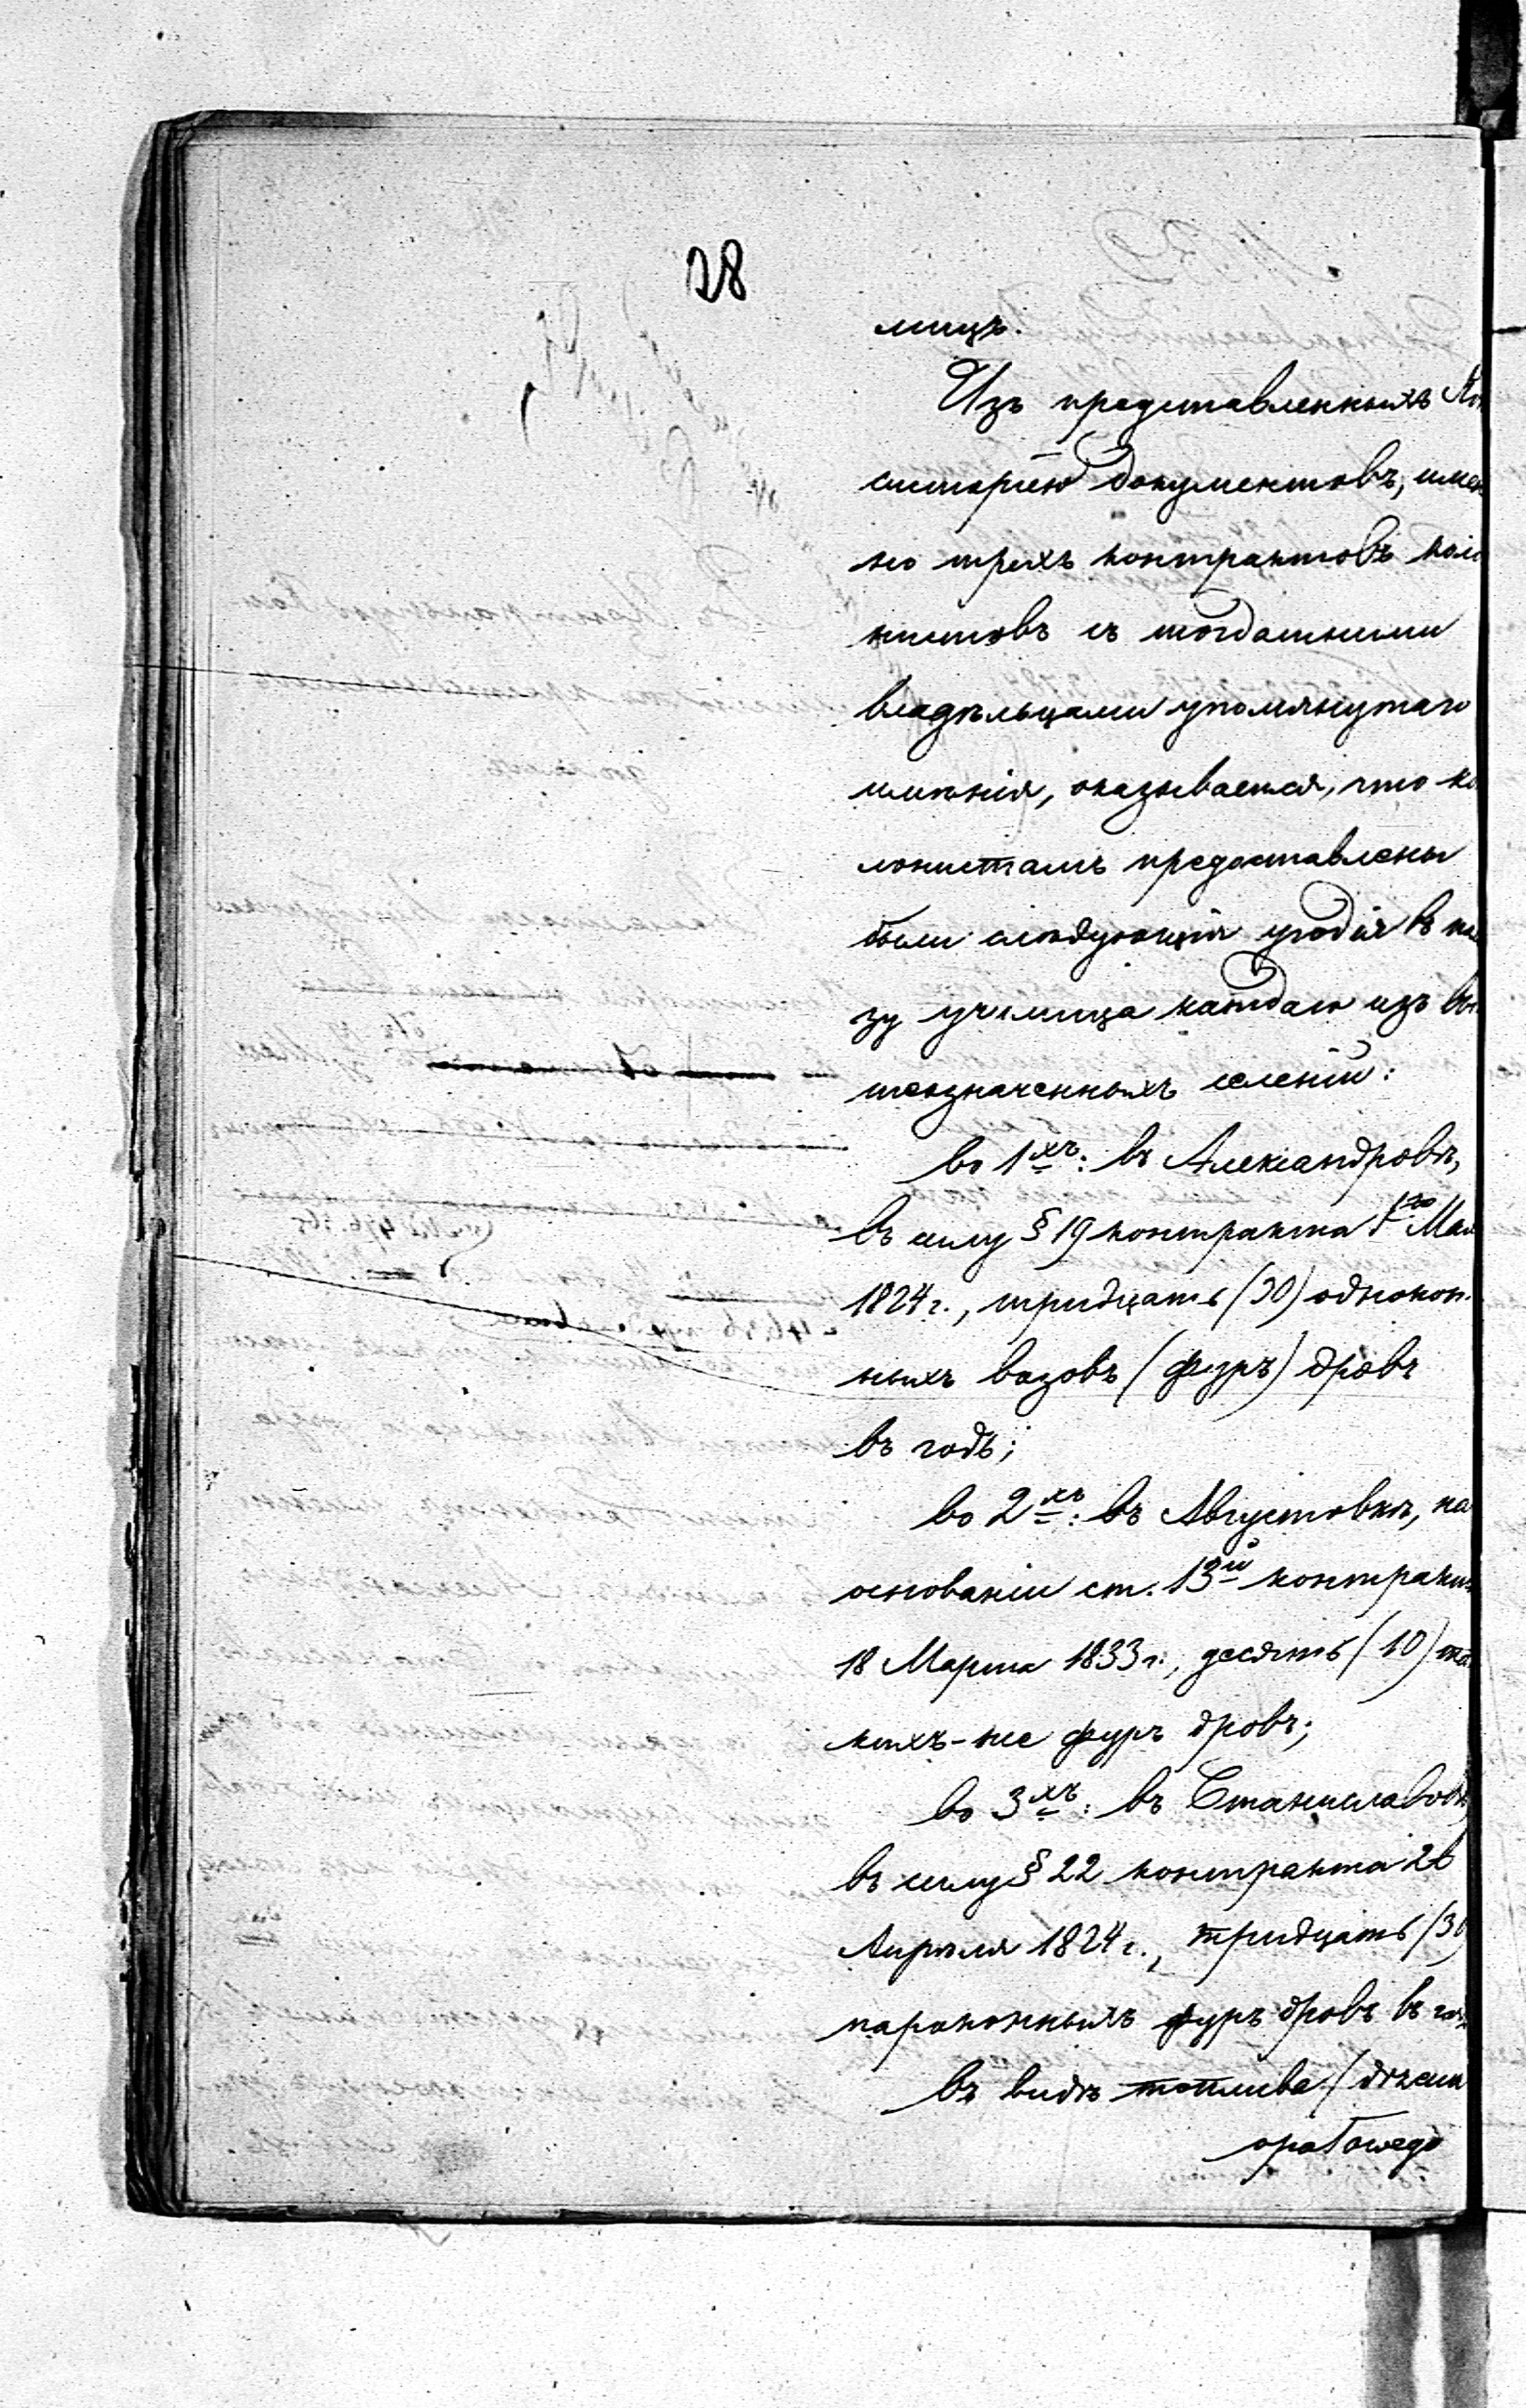 28
лищъ.
Изъ представленныхъ Кон
систоріею документовъ, имен
но трехъ контрактовъ коло
нистовъ съ тогдашними
владѣльцами упомянутаго
имѣнія, оказывается, что ко
лонистамъ предоставлены
были слѣдующія угодія въ поль
зу училища каждаго изъ вы
шеозначенныхъ селеній:
во 1хъ: въ Александровѣ,
въ силу § 19 контракта 1го Мая
1824 г., тридцать (30) однокон-
ныхъ возовъ (фуръ) дровъ
въ годъ;
во 2хъ: въ Августовкѣ, на
основаніи ст. 13й контракта
18 Марта 1833 г., десять (10) та
кихъ-же фуръ дровъ;
во 3хъ: въ Станиславовѣ,
въ силу § 22 контракта 26
Апрѣля 1824 г., тридцать (30)
пароконныхъ фуръ дровъ въ годъ
въ видѣ топлива